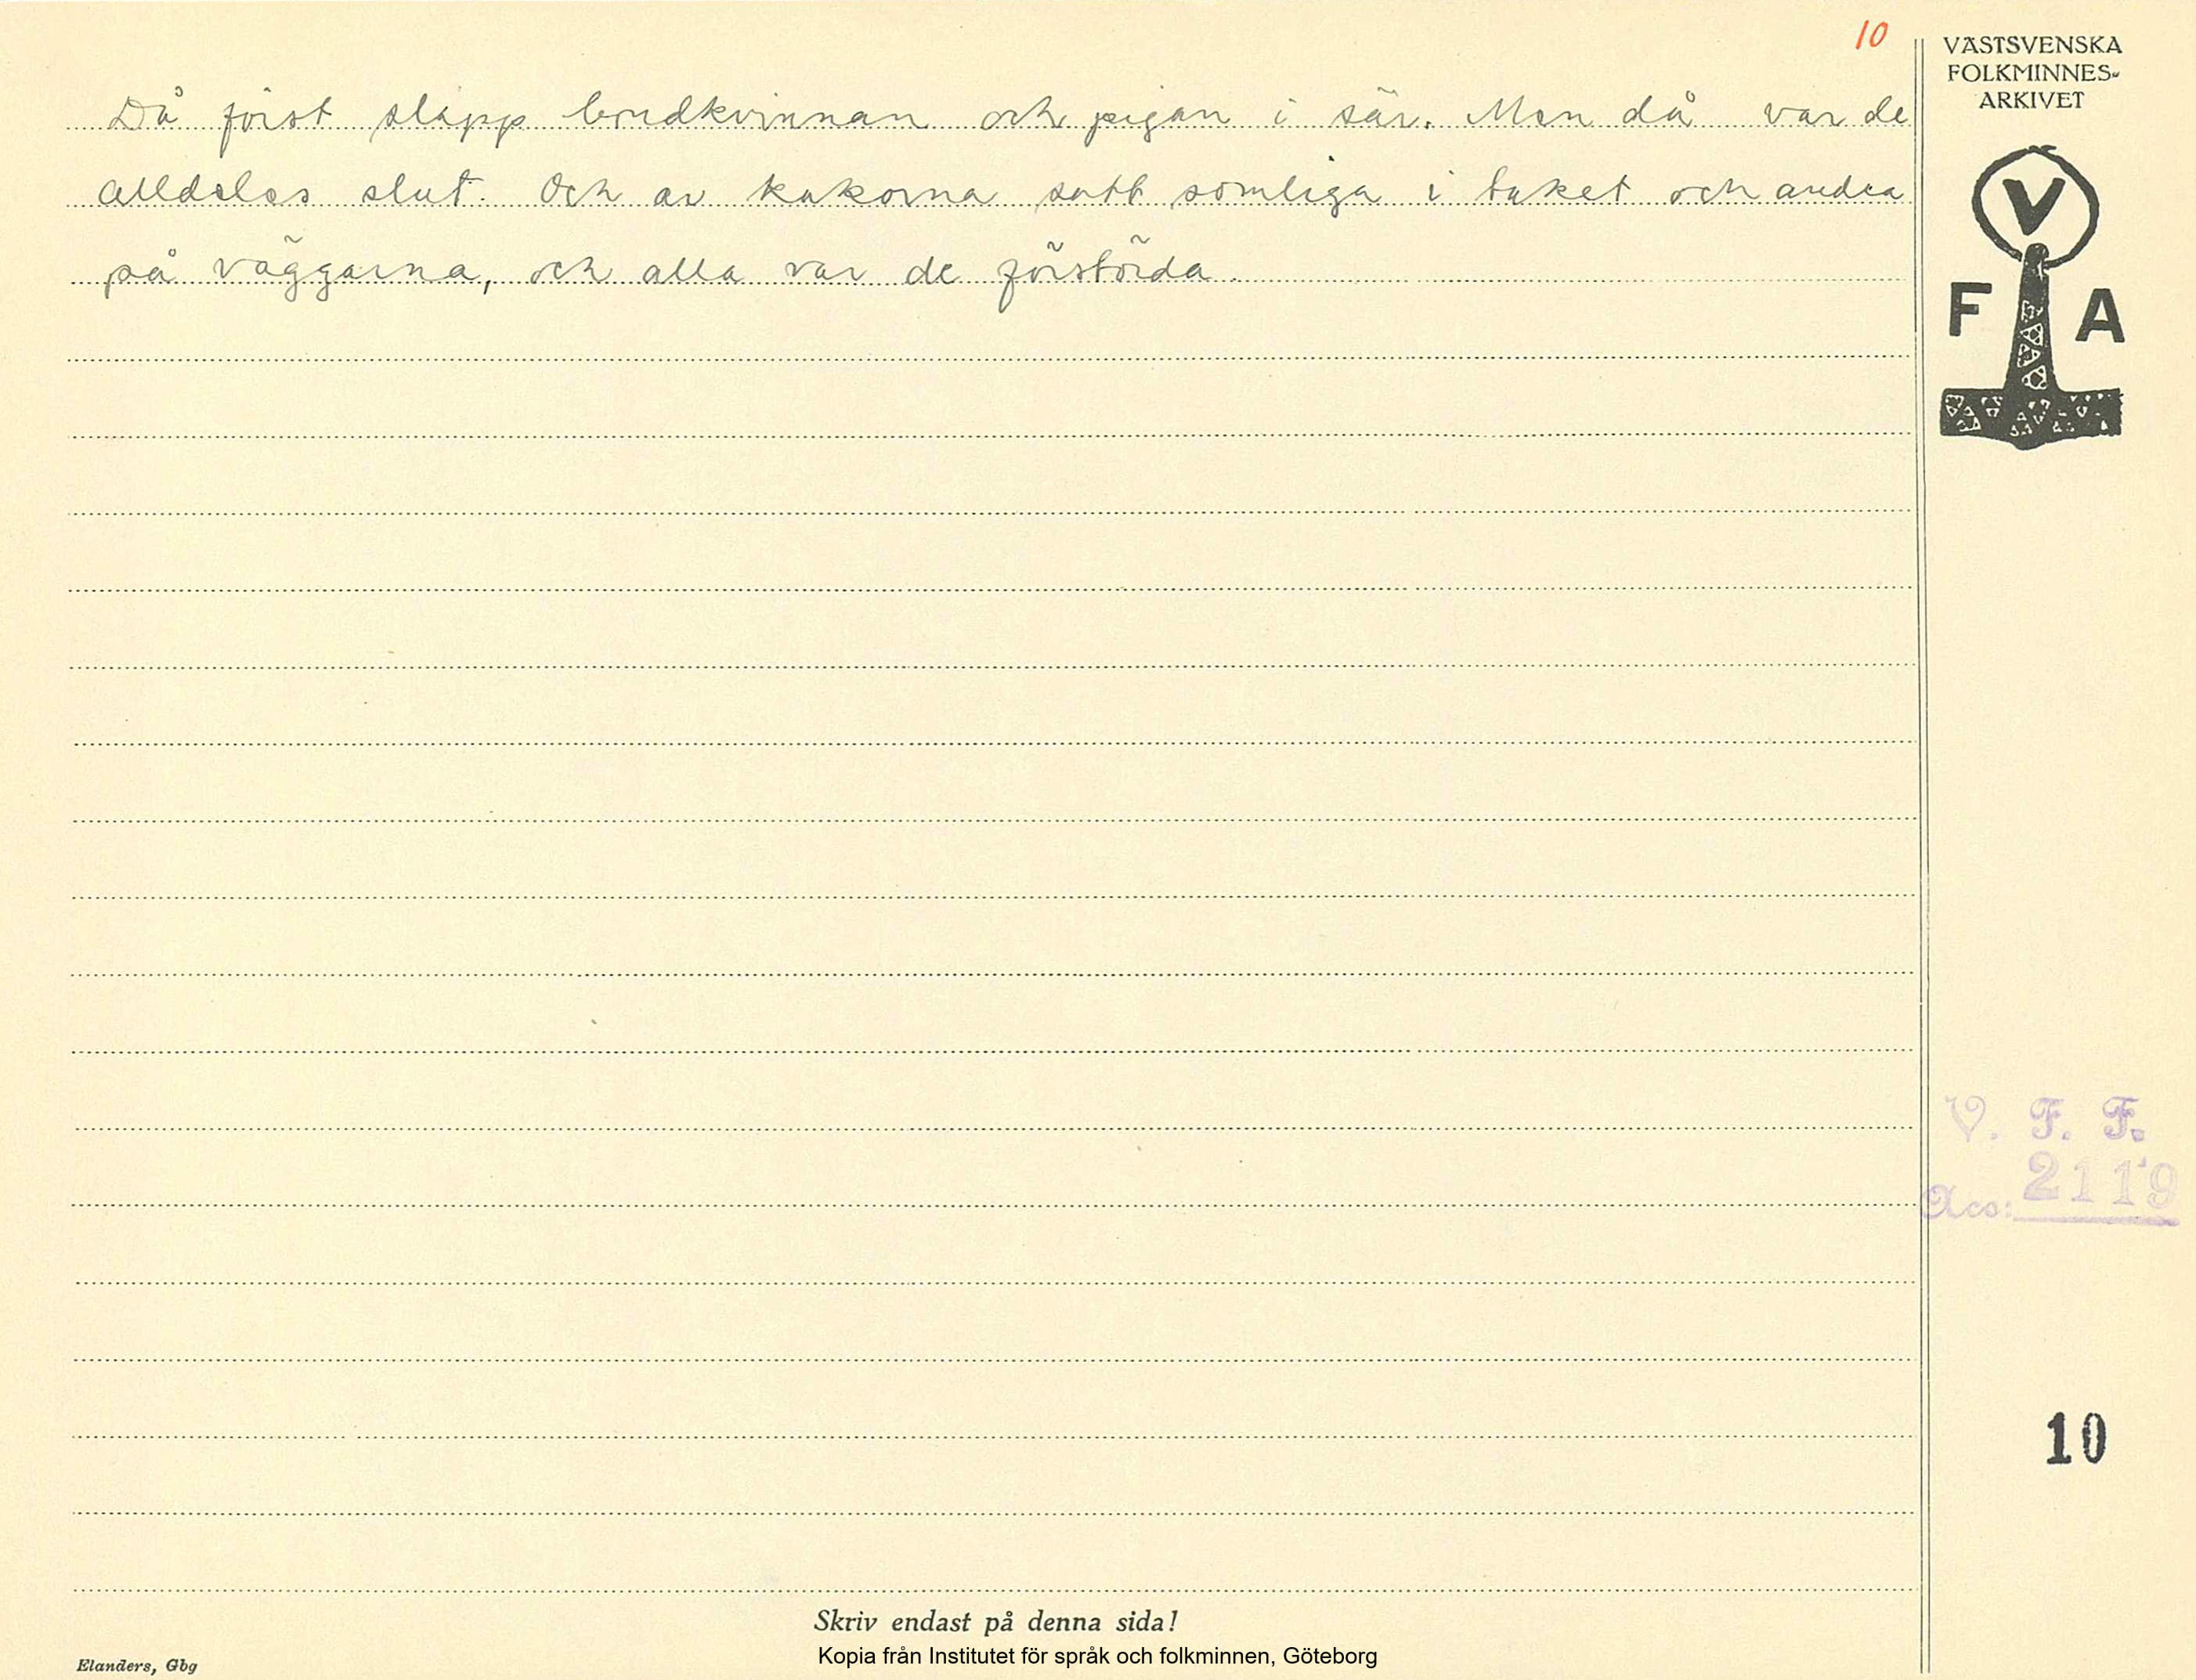 10
Då först släpp brudkvinnan och pigan i sär. Men då var de
alldeles slut. Och av kakorna satt somliga i taket och andra
på väggarna, och alla var de förstörda.
VÄSTSVENSKA
FOLKMINNES-
ARKIVET
V
F A
V. F. F.
Acc: 2119
10
Skriv endast på denna sida!
Kopia från Institutet för språk och folkminnen, Göteborg
Elanders, Gbg